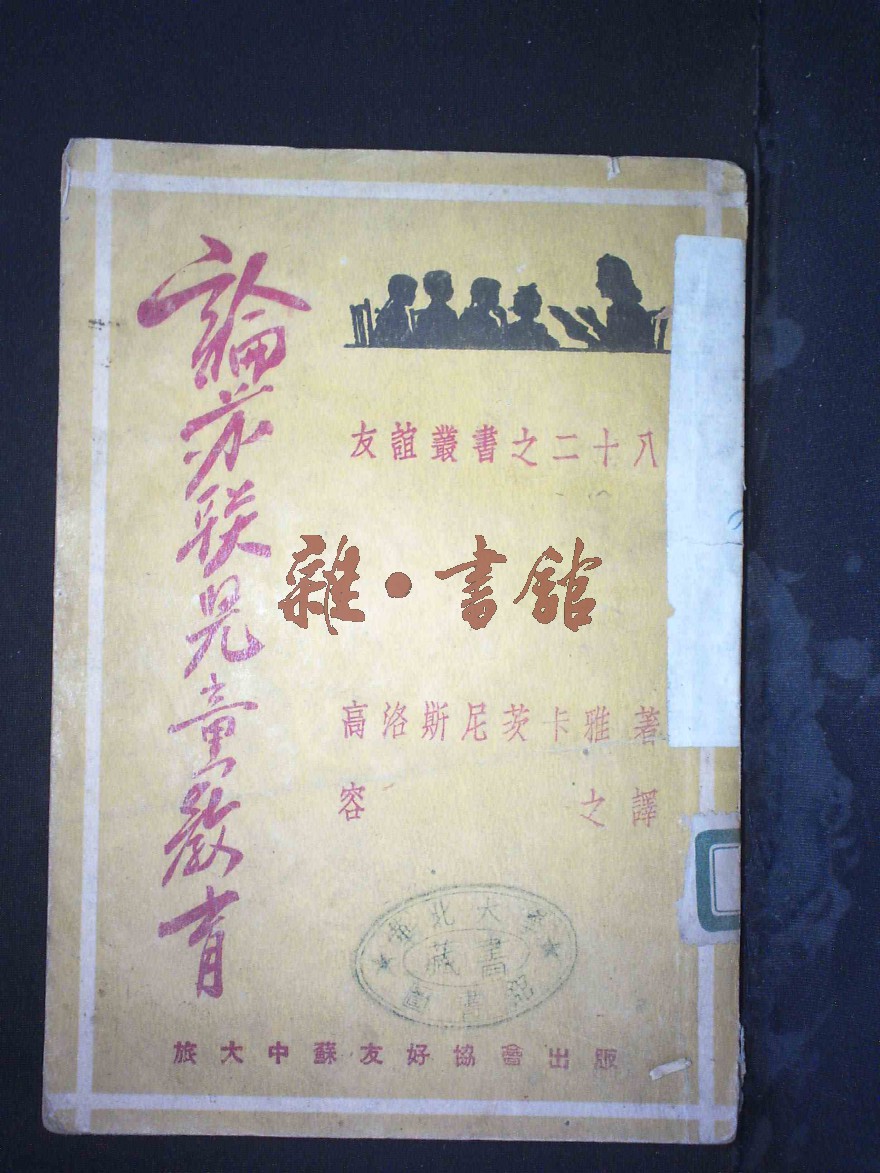 論苏联兒童教育
友誼叢書之二十八
雜·書館
高洛斯尼茨卡雅 著
容之譯
北大
藏書
旅大中蘇友好協會出版